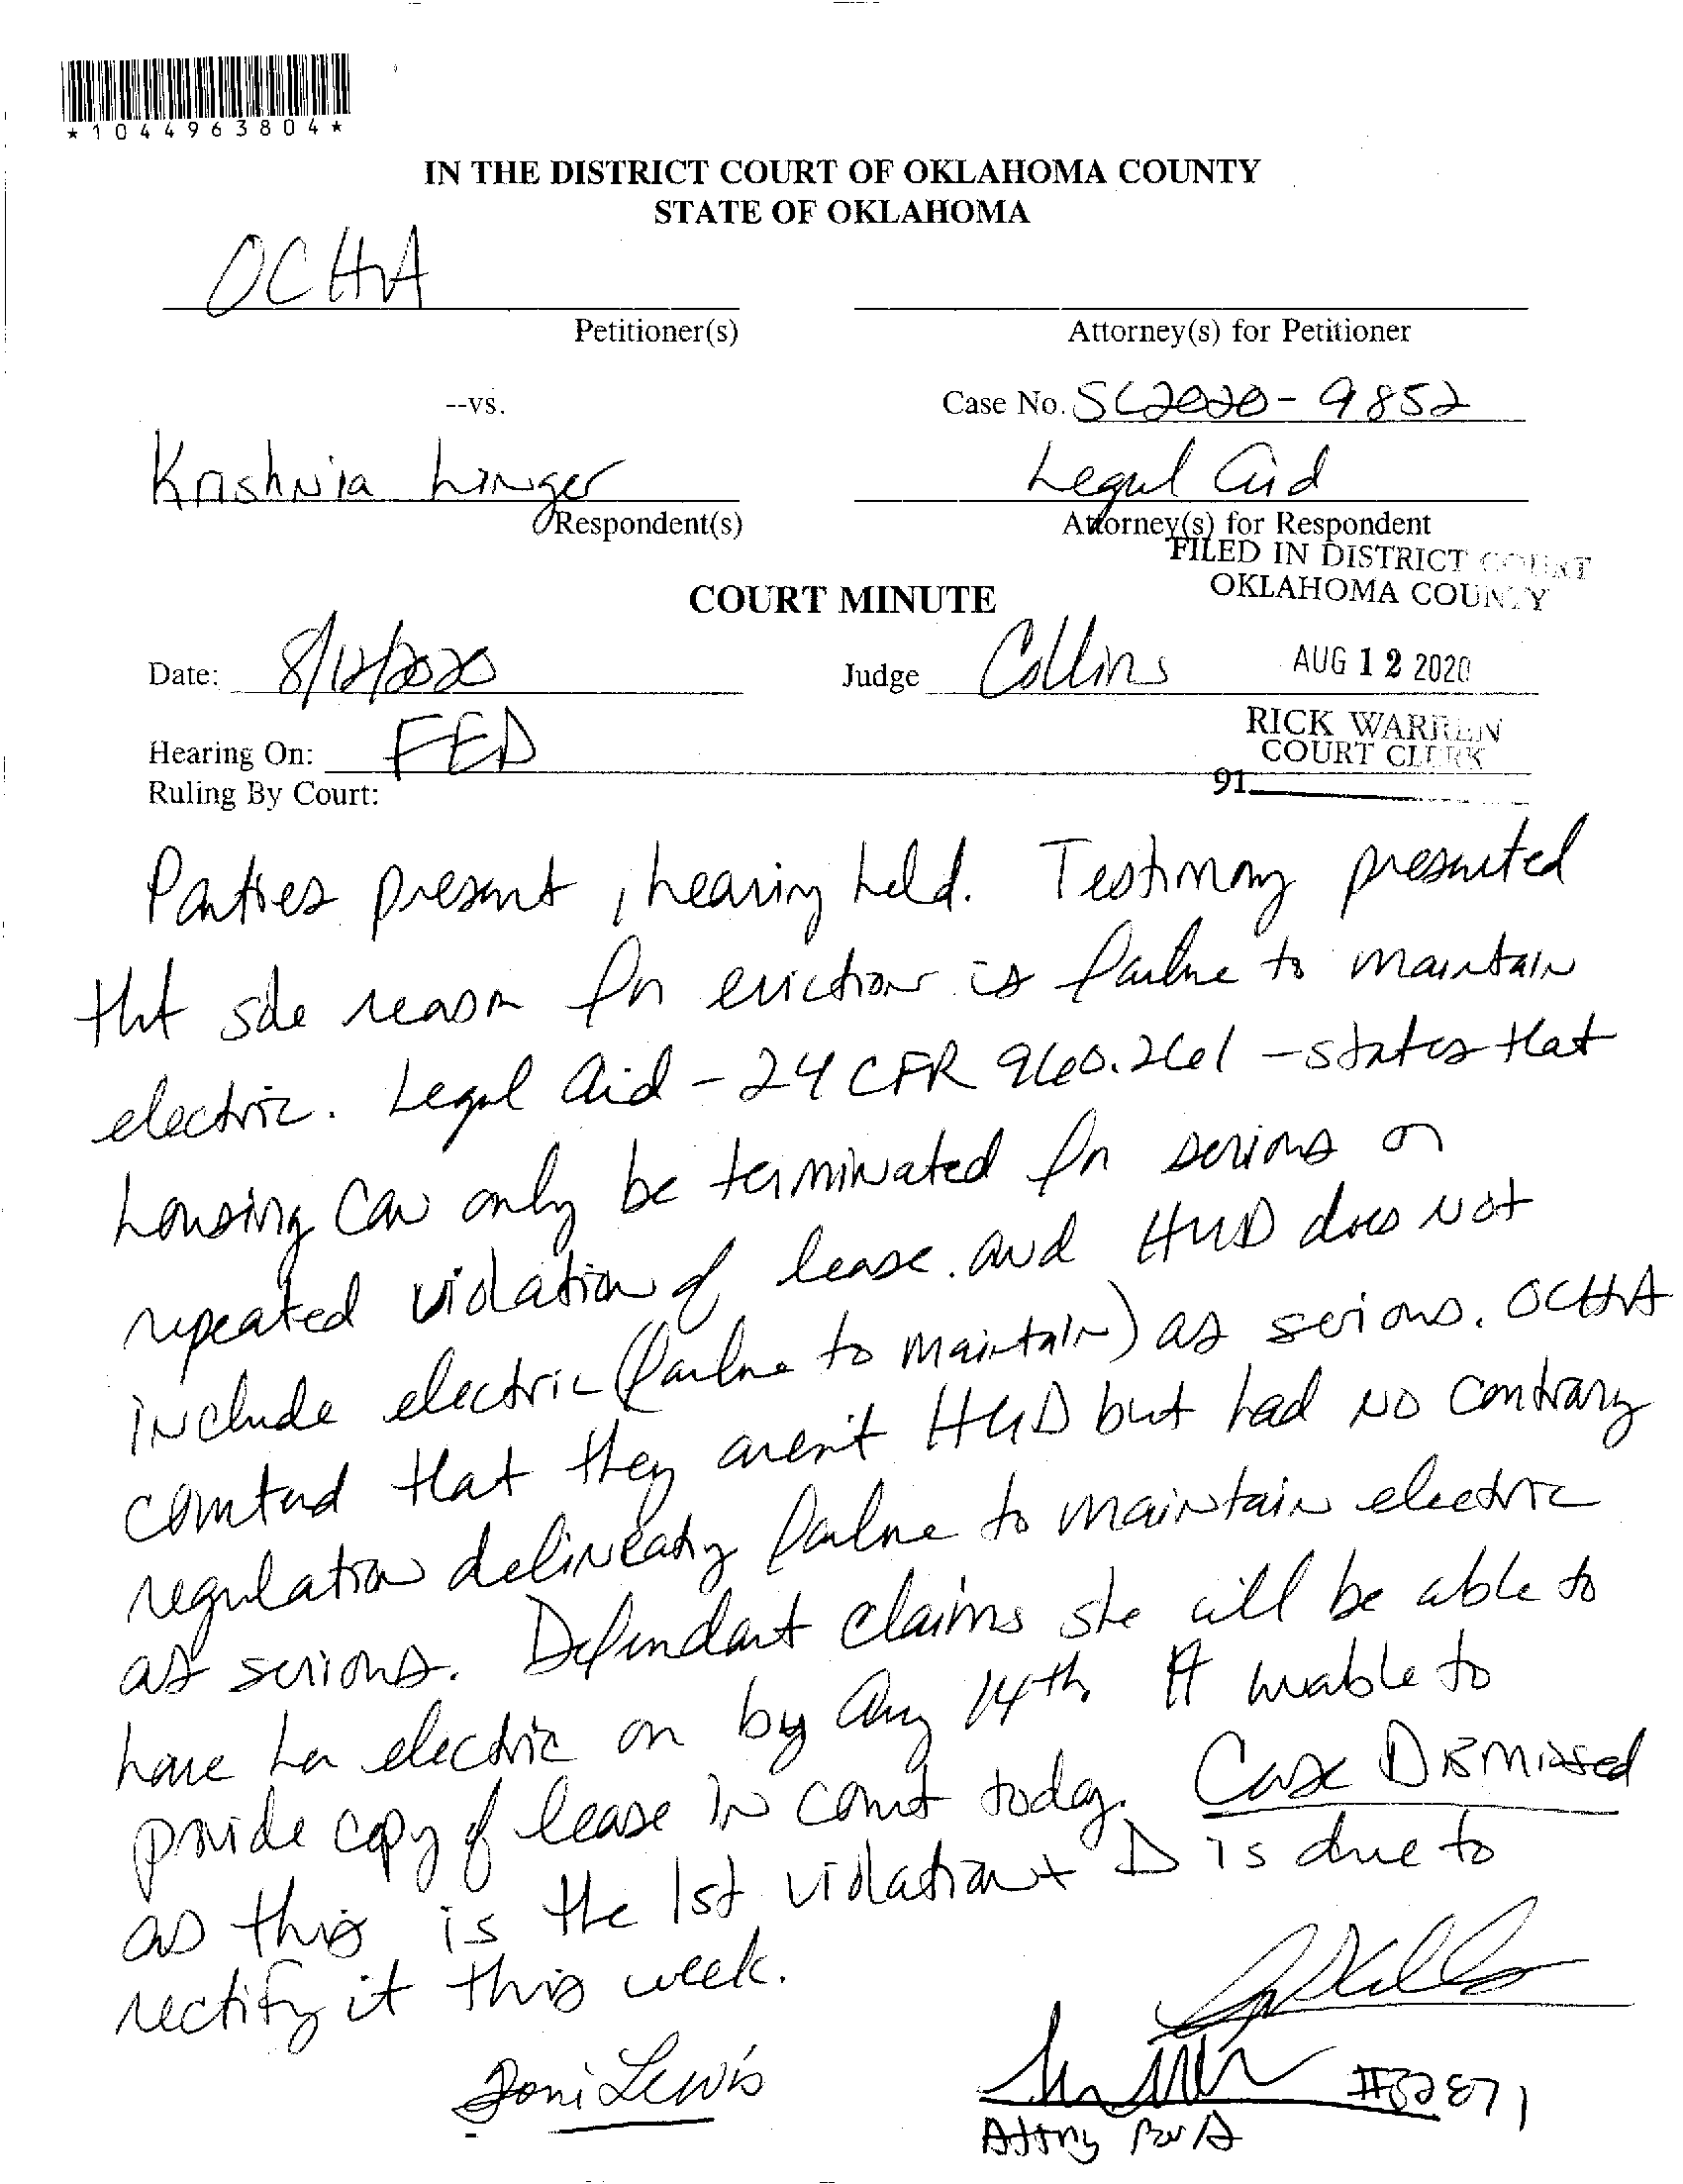 *1044963804*
IN THE DISTRICT COURT OF OKLAHOMA COUNTY
STATE OF OKLAHOMA
OCHA
Petitioner(s)
Attorney(s) for Petitioner
--vs.
Case No. SC2020-9852
Krishnia Linger
Legal Aid
Respondent(s)
Attorney(s) for Respondent
FILED IN DISTRICT COURT
OKLAHOMA COUNTY
COURT MINUTE
Date: 8/12/2020
Judge Collins
AUG 12 2020
RICK WARREN
COURT CLERK
Hearing On: FED
91
Ruling By Court:
Parties present, hearing held. Testimony presented
tht sole reason for eviction is failure to maintain
electric. Legal Aid - 24 CFR 960.261 - states that
housing can only be terminated for serious or
repeated violation of lease. and HUD does not
include electric (failure to maintain) as serious. OCHA
countered that they aren't HUD but had no contrary
regulation delineating failure to maintain electric
as serious. Defendant claims she will be able to
have her electric on by Aug 14th. π unable to
provide copy of lease in court today. Case Dismissed
as this is the 1st violation + Δ is due to
rectify it this week.
Toni Lewis
#32871
Attny for Δ